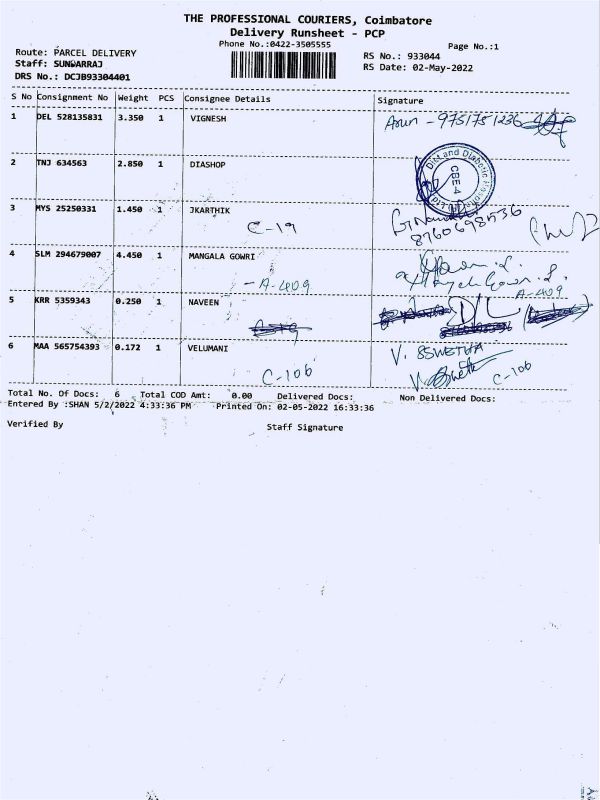 THE PROFESSIONAL COURIERS, Coimbatore
Delivery Runsheet - PCP
Phone No.:0422-3505555
Page No.:1
Route: PARCEL DELIVERY
Staff: SUNDARRAJ
DRS No.: DCJB93304401
RS No.: 933044
RS Date: 02-May-2022
S No Consignment No Weight PCS Consignee Details Signature
1 DEL 528135831 3.350 1 VIGNESH Arun - 9751751236
2 TNJ 634563 2.850 1 DIASHOP
Diet and Diabetic
CBE 4
3 MYS 25250331 1.450 1 JKARTHIK
C-19 8760698536
4 SLM 294679007 4.450 1 MANGALA GOWRI
-A-409
A-409
5 KRR 5359343 0.250 1 NAVEEN D/L
6 MAA 565754393 0.172 1 VELUMANI V. SSWETHA
C-106 C-106
Total No. Of Docs: 6 Total COD Amt: 0.00 Delivered Docs: Non Delivered Docs:
Entered By :SHAN 5/2/2022 4:33:36 PM Printed On: 02-05-2022 16:33:36
Verified By Staff Signature